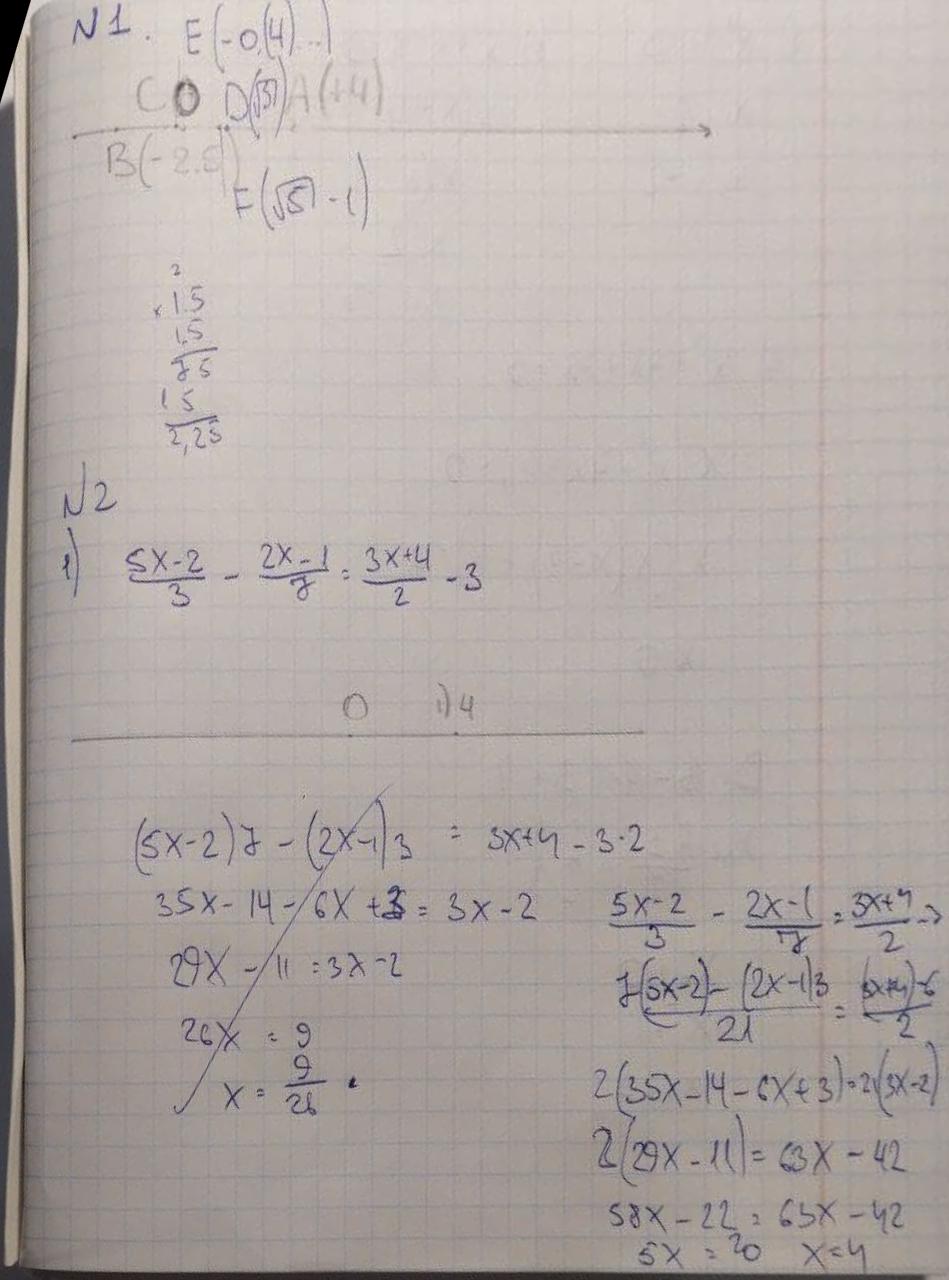 N1. E(-0,(4)...)
C O D(√3) A(+4)
B(-2.5)
F(√5 - 1)
2
× 1.5
1.5
75
15
2,25
N2
1) (5x-2)/3 - (2x-1)/7 = (3x+4)/2 - 3
0 1) 4
(5x-2)7 - (2x-1)3 = 3x+4 - 3·2
35x - 14 - 6x + 3 = 3x - 2
29x - 11 = 3x - 2
26x = 9
x = 9/26
(5x-2)/3 - (2x-1)/7 = (3x+4)/2 - 3
(7(5x-2) - (2x-1)3)/21 = ((3x+4)-6)/2
2(35x - 14 - 6x + 3) = 21(3x-2)
2(29x - 11) = 63x - 42
58x - 22 = 63x - 42
5x = 20 x = 4